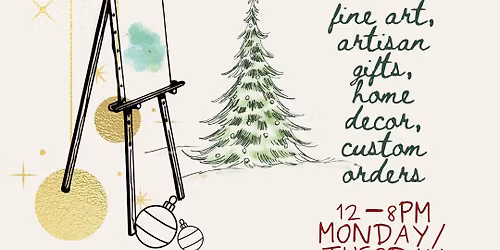 fine art,
artisan
gifts,
home
decor,
custom
orders
12-8PM
MONDAY/